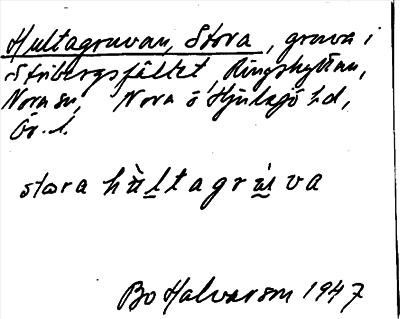 Hultagruvan, Stora, gruva i
Stribergsfältet, Ringshyttan,
Nora sn, Nora o Hjulsjö hd,
Ör. l.
stora hùltagrùva
Bo Halvarson 1947